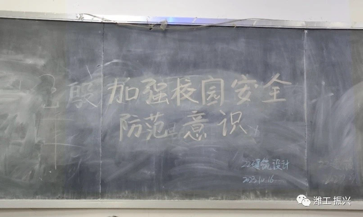 加强校园安全
防范意识
潍工振兴